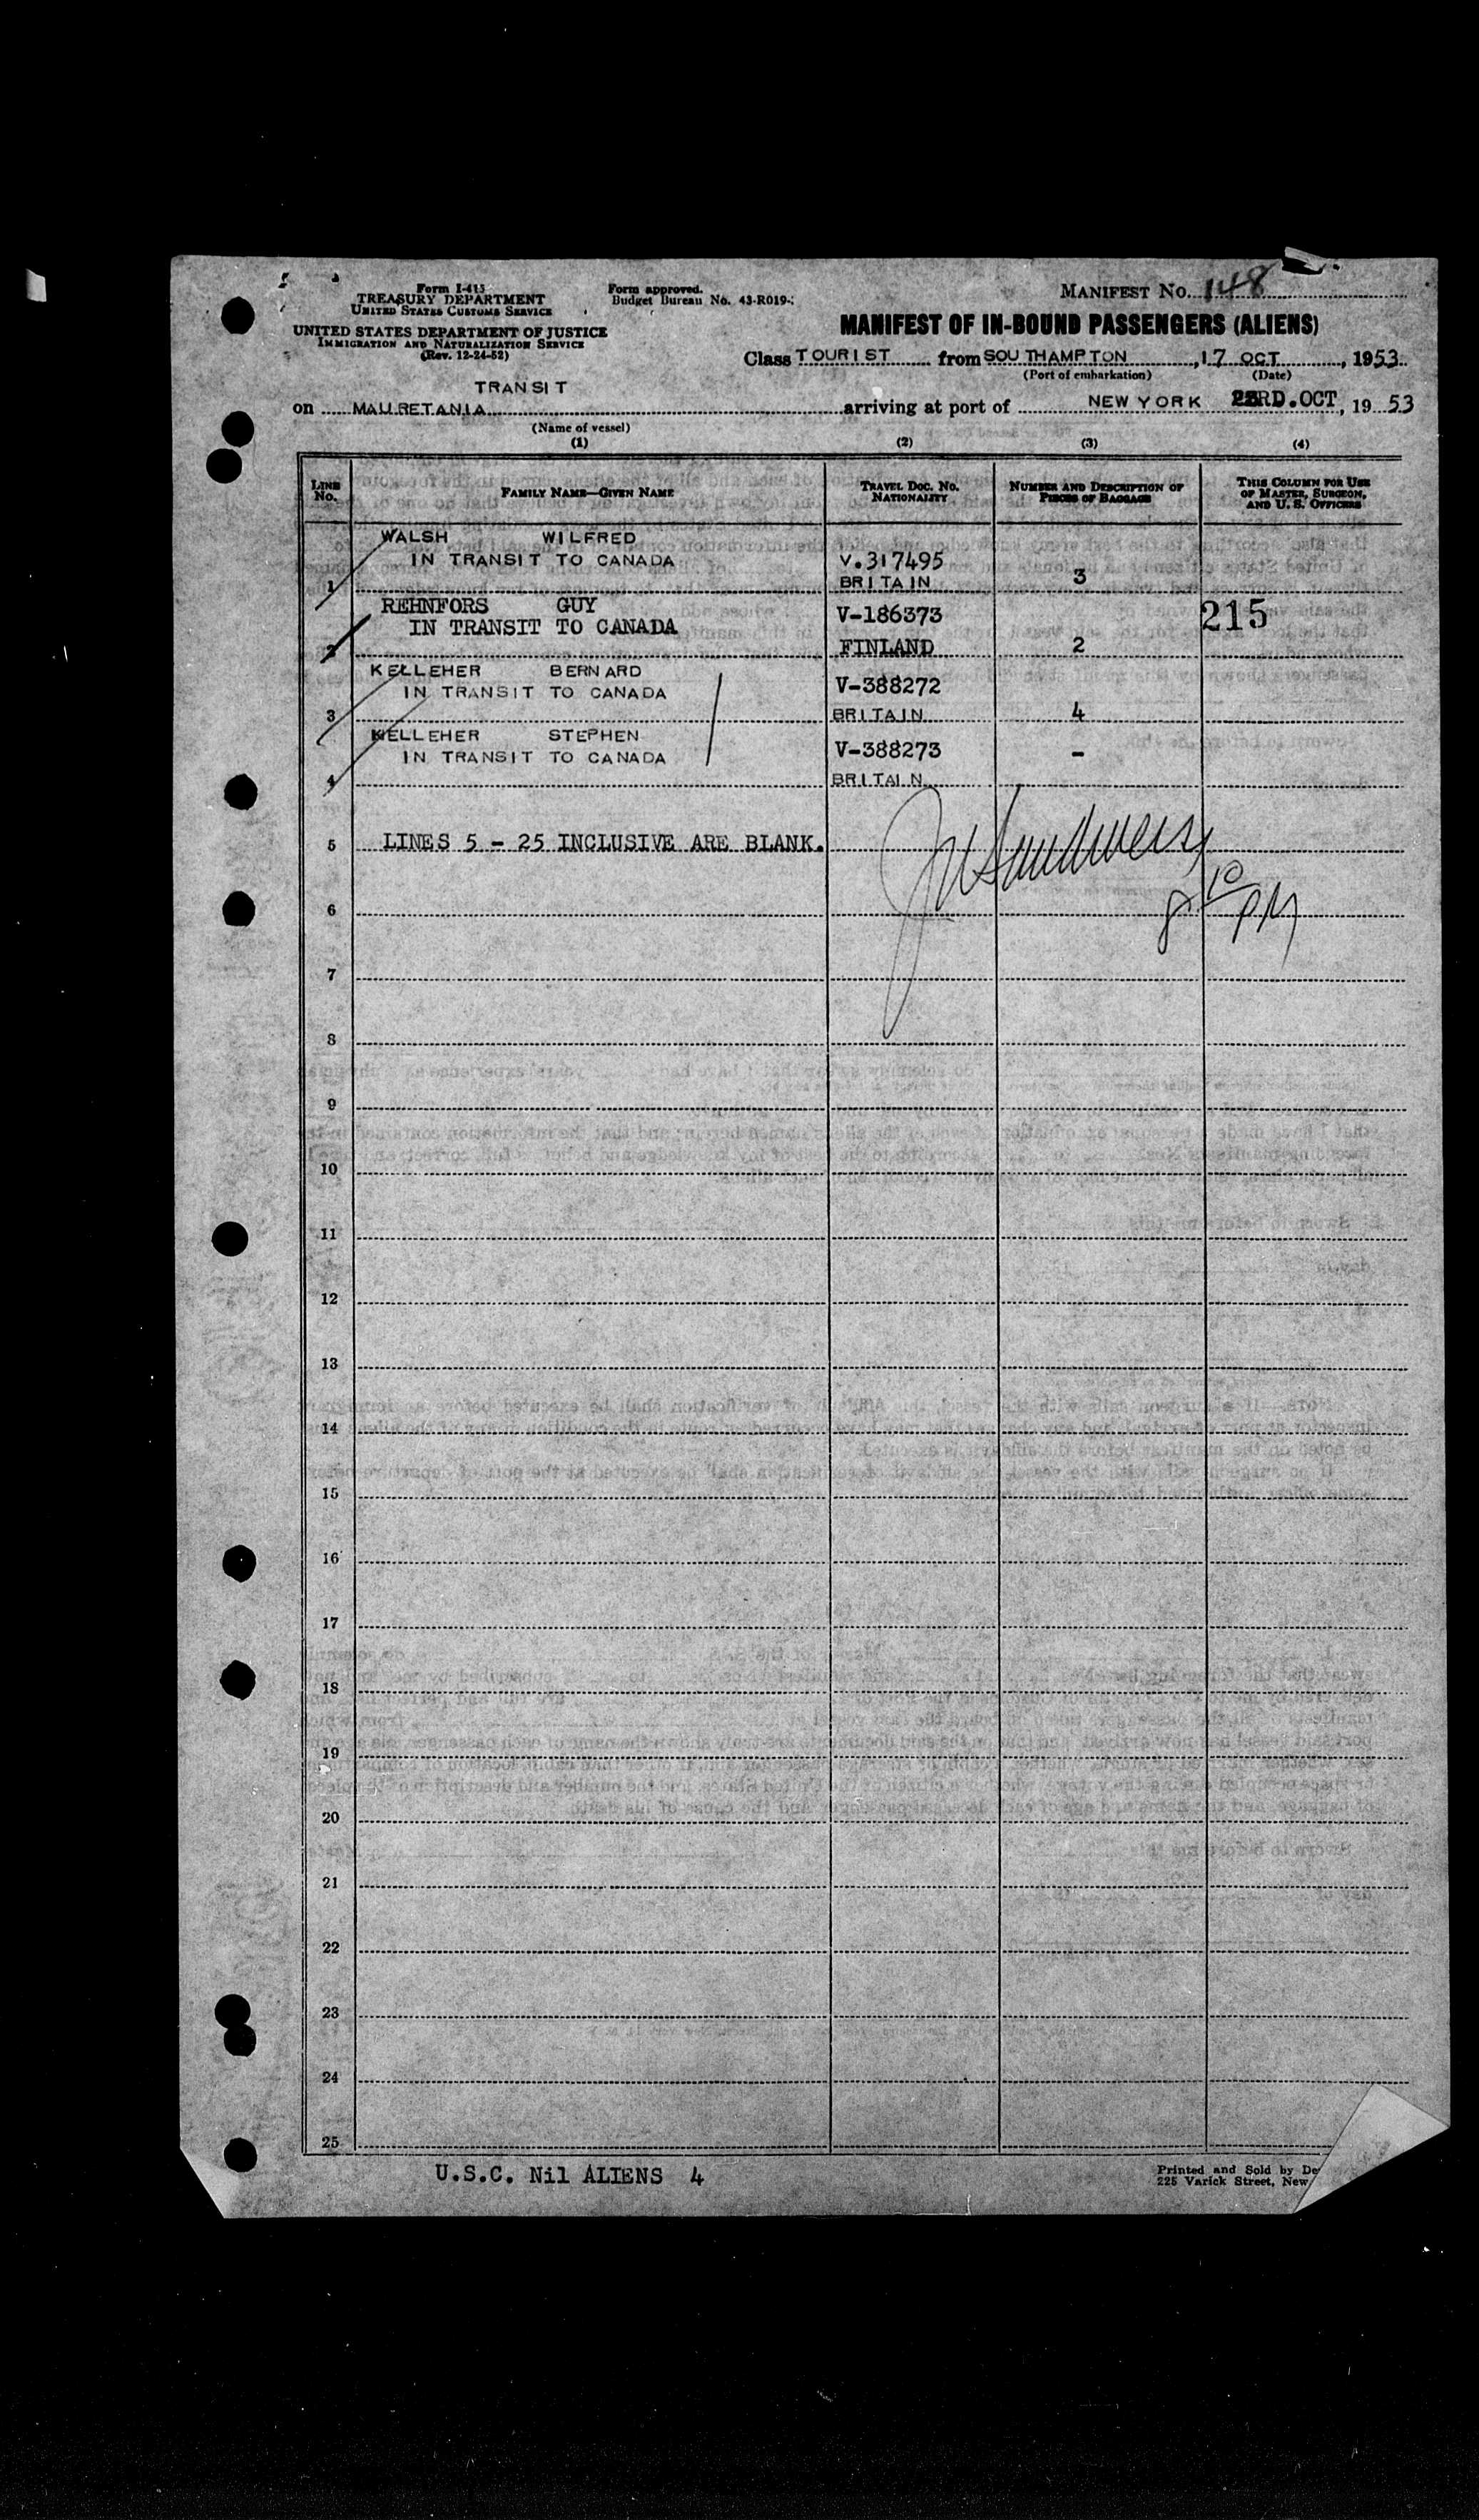 Form I-415
TREASURY DEPARTMENT
UNITED STATES CUSTOMS SERVICE
UNITED STATES DEPARTMENT OF JUSTICE
IMMIGRATION AND NATURALIZATION SERVICE
(Rev. 12-24-52)
Form approved.
Budget Bureau No. 43-R019-
MANIFEST No. 148
MANIFEST OF IN-BOUND PASSENGERS (ALIENS)
Class TOURIST from SOUTHAMPTON, 17 OCT, 1953
(Port of embarkation) (Date)
TRANSIT
on MAURETANIA arriving at port of NEW YORK 23RD.OCT, 1953
(Name of vessel)
(1) (2) (3) (4)
LINE No. FAMILY NAME—GIVEN NAME TRAVEL DOC. No. NATIONALITY NUMBER AND DESCRIPTION OF PIECES OF BAGGAGE THIS COLUMN FOR USE OF MASTER, SURGEON, AND U. S. OFFICERS
WALSH WILFRED
IN TRANSIT TO CANADA V.317495
1 BRITAIN 3
REHNFORS GUY V-186373 215
IN TRANSIT TO CANADA
2 FINLAND 2
KELLEHER BERNARD
IN TRANSIT TO CANADA V-388272
3 BRITAIN 4
KELLEHER STEPHEN
IN TRANSIT TO CANADA V-388273 -
4 BRITAIN
5 LINES 5 - 25 INCLUSIVE ARE BLANK.
8 10 PM
6
7
8
9
10
11
12
13
14
15
16
17
18
19
20
21
22
23
24
25
U.S.C. Nil ALIENS 4
Printed and Sold by De
225 Varick Street, New